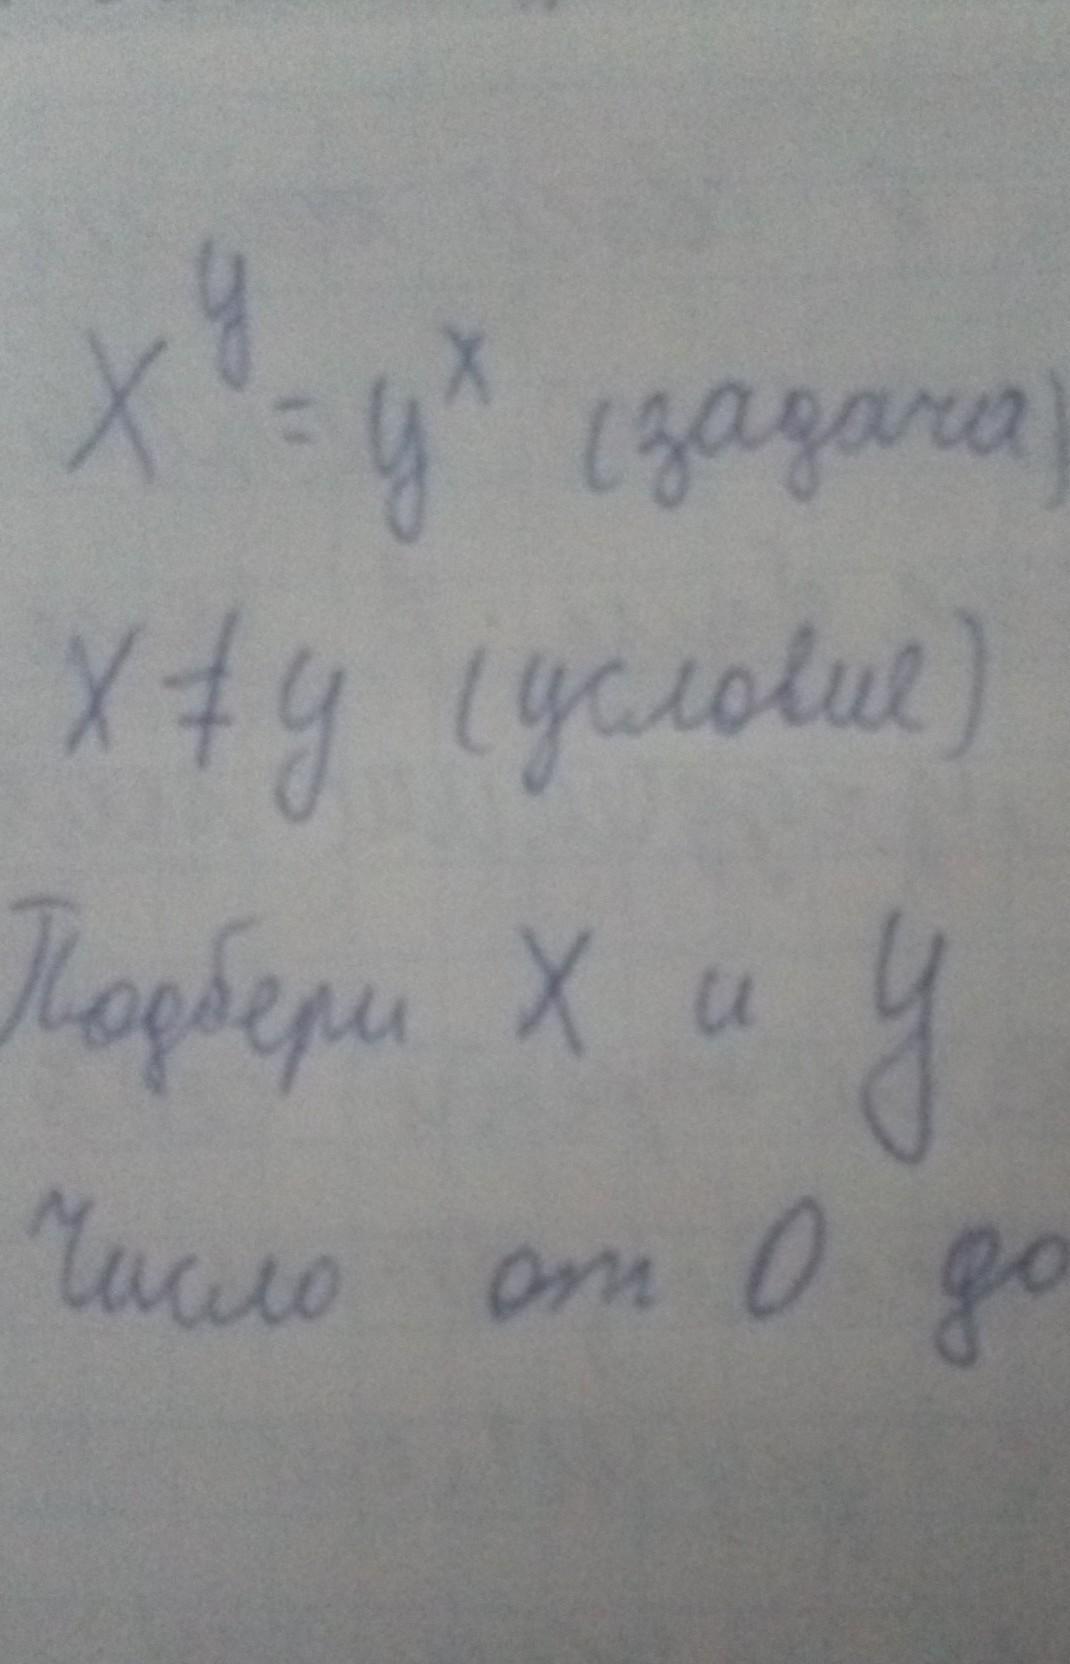 x^y = y^x (задача)
x ≠ y (условие)
Подбери X и У
Число от 0 до